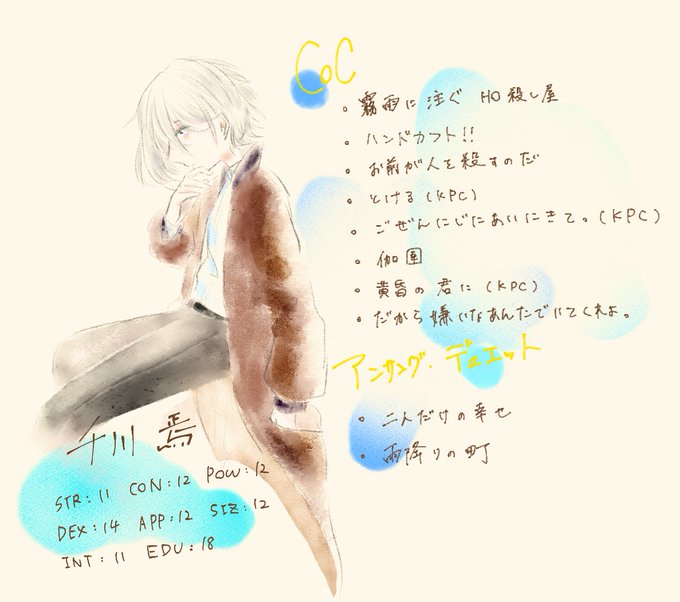 CoC
・霧雨に注ぐ HO殺し屋
・ハンドカフト!!
・お前が人を殺すのだ
・とける(KPC)
・ごぜんにじにあいにきて。(KPC)
・伽囼
・黄昏の君に(KPC)
・だから嫌いなあんたでいてくれよ。
アンサング・デュエット
・二人だけの幸せ
・雨降りの町
十川 焉
STR:11 CON:12 POW:12
DEX:14 APP:12 SIZ:12
INT:11 EDU:18